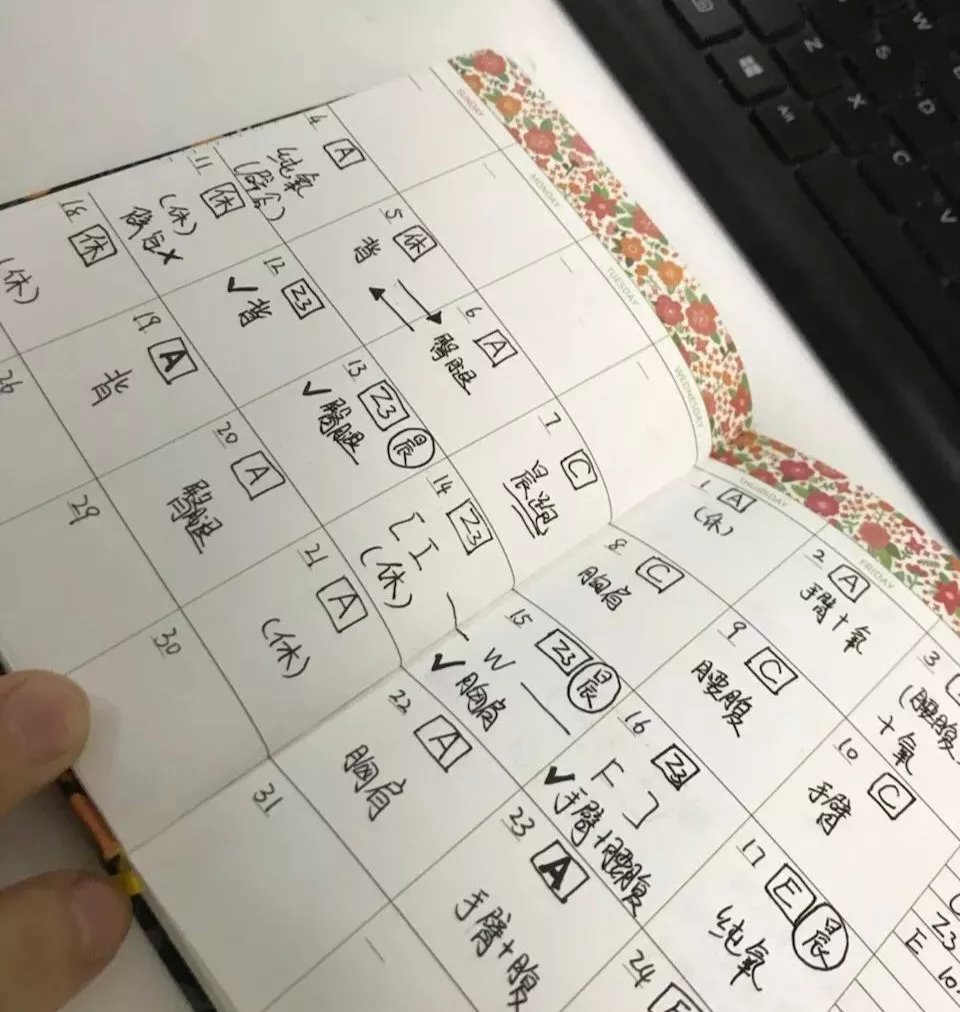 SUNDAY
MONDAY
TUESDAY
WEDNESDAY
THURSDAY
FRIDAY
1 A
(休)
2 A
手臂+氧
3
(腰腹
+氧
4 A
纯氧
5 休
背
6 A
臀腿
7 C
晨跑
8 C
胸肩
9 C
腰腹
10 C
手臂
11 休
(休)
12 Z3
✓ 背
13 Z3 晨
✓ 臀腿
14 Z3
[ I
(休)
15 Z3 晨
W
✓ 胸肩
16 Z3
F ]
✓ 手臂+腰腹
17 E 晨
纯氧
18 休
(休)
19 A
背
20 A
臀腿
21 A
(休)
22 A
胸肩
23 A
手臂+腹
24
26
29
30
31
Z3
E
Alt
Z
X
C
V
S
D
W